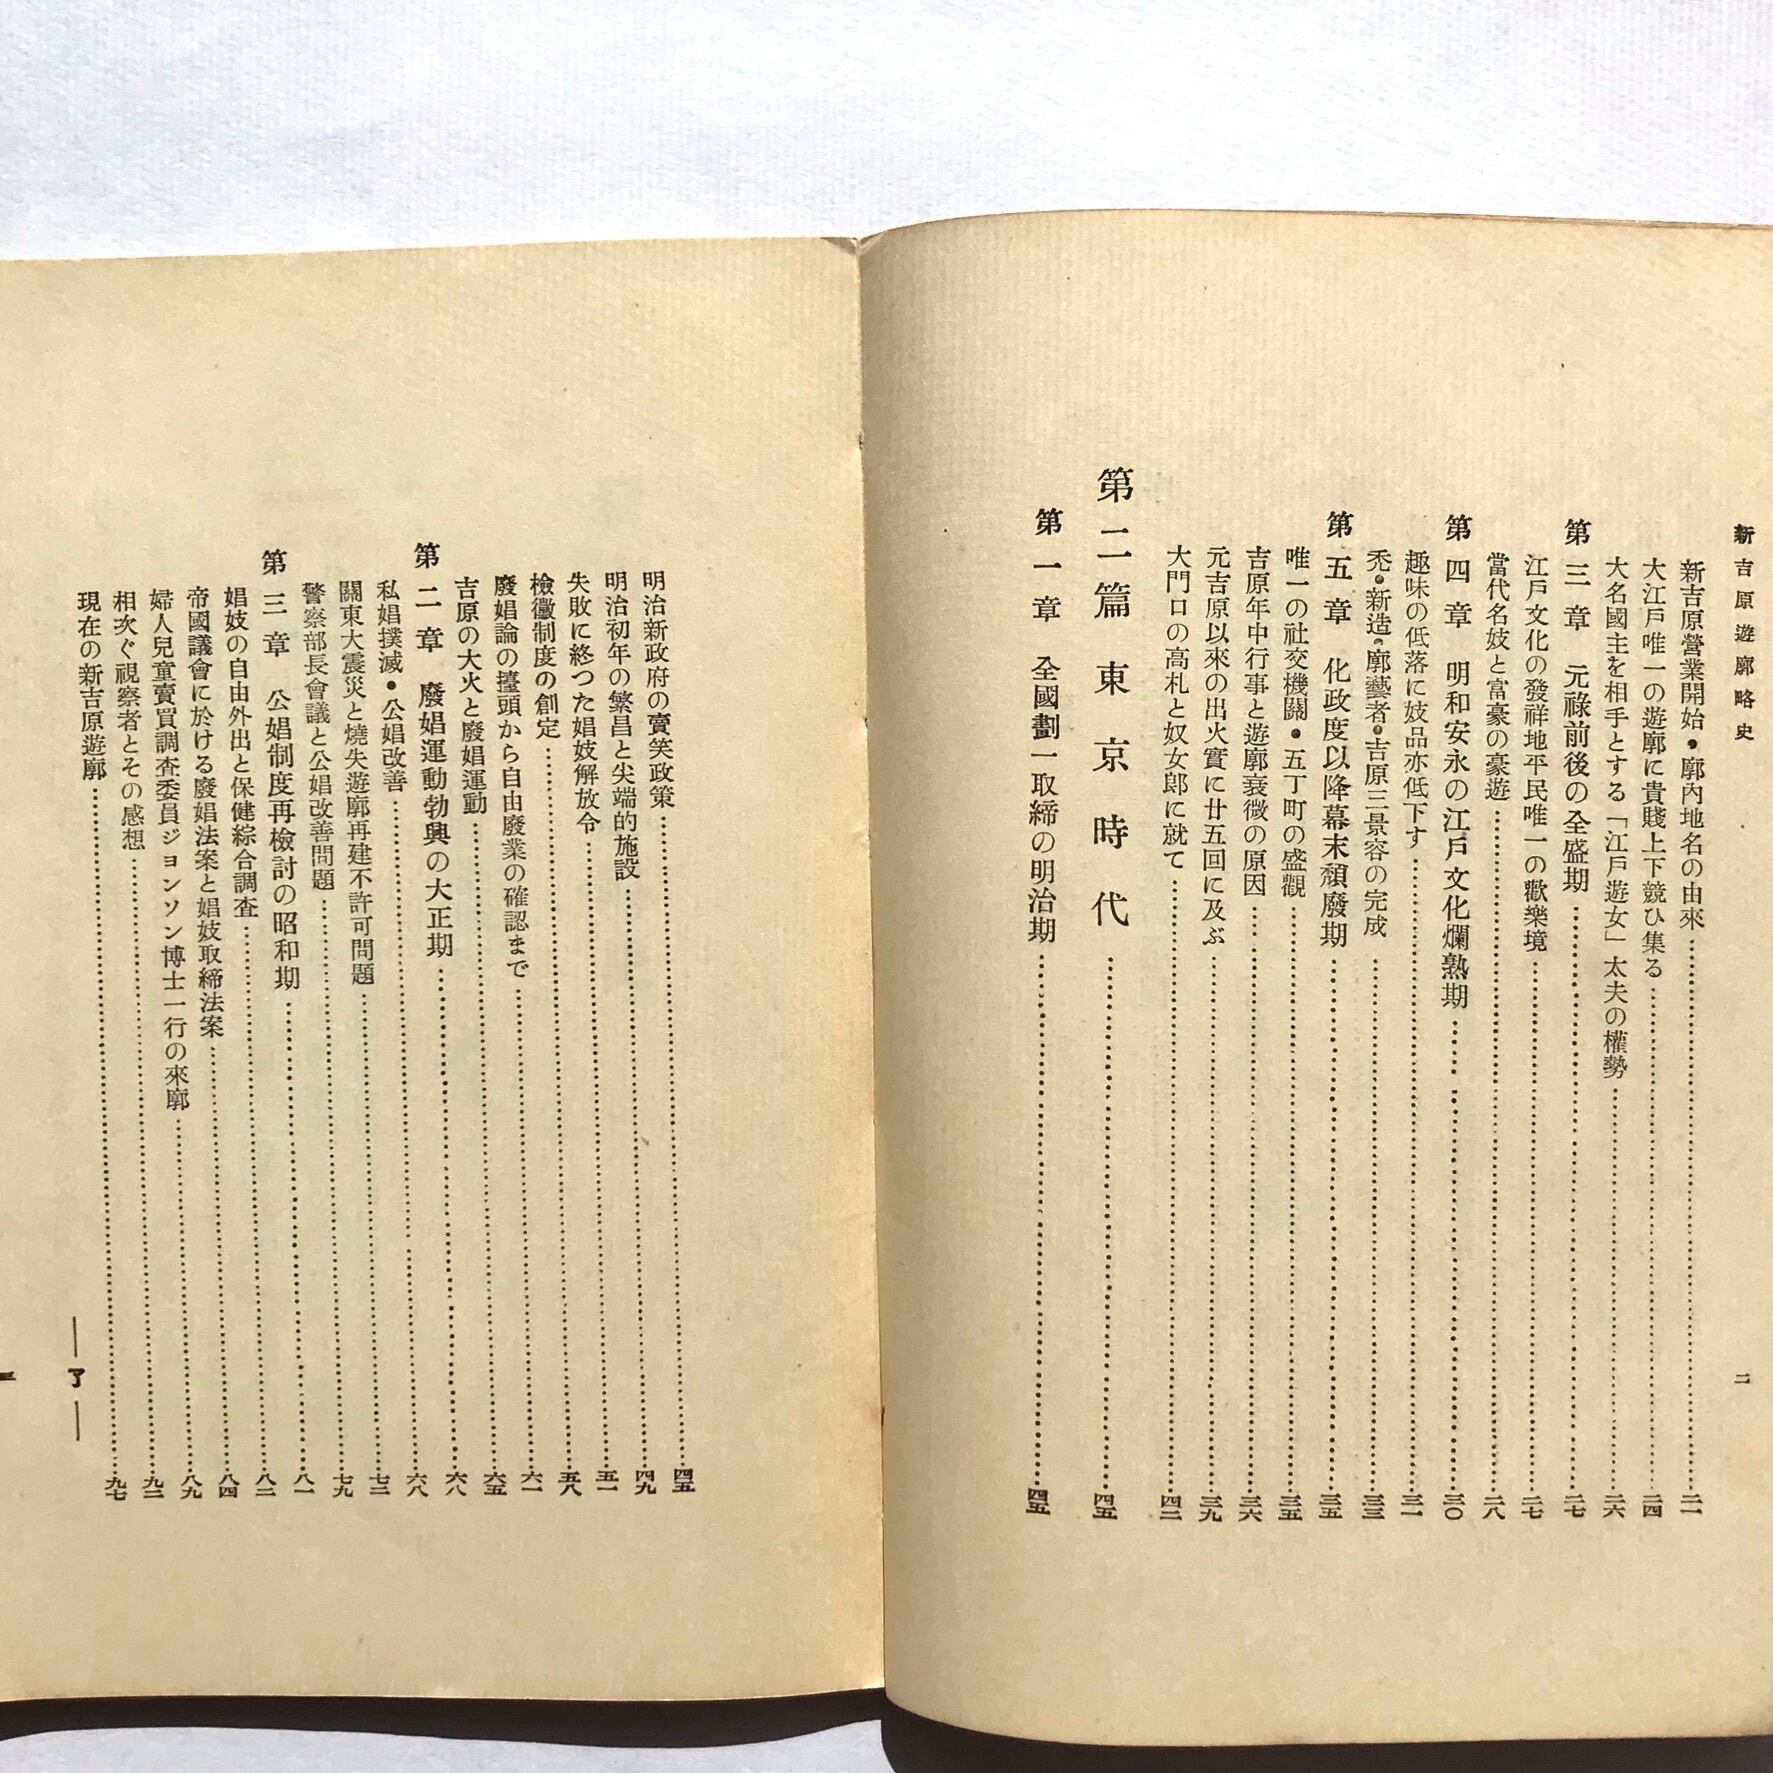 新吉原遊廓略史
二
新吉原營業開始・廓內地名の由來……二一
大江戶唯一の遊廓に貴賤上下競ひ集る……二四
大名國主を相手とする「江戶遊女」太夫の權勢……二六
第三章 元祿前後の全盛期……二七
江戶文化の發祥地平民唯一の歡樂境……二七
當代名妓と富豪の豪遊……二八
第四章 明和安永の江戶文化爛熟期……三〇
趣味の低落に妓品亦低下す……三一
禿・新造・廓藝者・吉原三景容の完成……三三
第五章 化政度以降幕末頽廢期……三五
唯一の社交機關・五丁町の盛觀……三五
吉原年中行事と遊廓衰微の原因……三六
元吉原以來の出火實に廿五回に及ぶ……三九
大門口の高札と奴女郎に就て……四二
第二篇 東京時代……四五
第一章 全國劃一取締の明治期……四五
明治新政府の賣笑政策……四五
明治初年の繁昌と尖端的施設……四九
失敗に終つた娼妓解放令……五一
檢黴制度の創定……五八
廢娼論の擡頭から自由廢業の確認まで……六一
吉原の大火と廢娼運動……六五
第二章 廢娼運動勃興の大正期……六八
私娼撲滅・公娼改善……六八
關東大震災と燒失遊廓再建不許可問題……七三
警察部長會議と公娼改善問題……七九
第三章 公娼制度再檢討の昭和期……八一
娼妓の自由外出と保健綜合調査……八二
帝國議會に於ける廢娼法案と娼妓取締法案……八四
婦人兒童賣買調査委員ジョンソン博士一行の來廓……八九
相次ぐ視察者とその感想……九二
現在の新吉原遊廓……九七
―了―